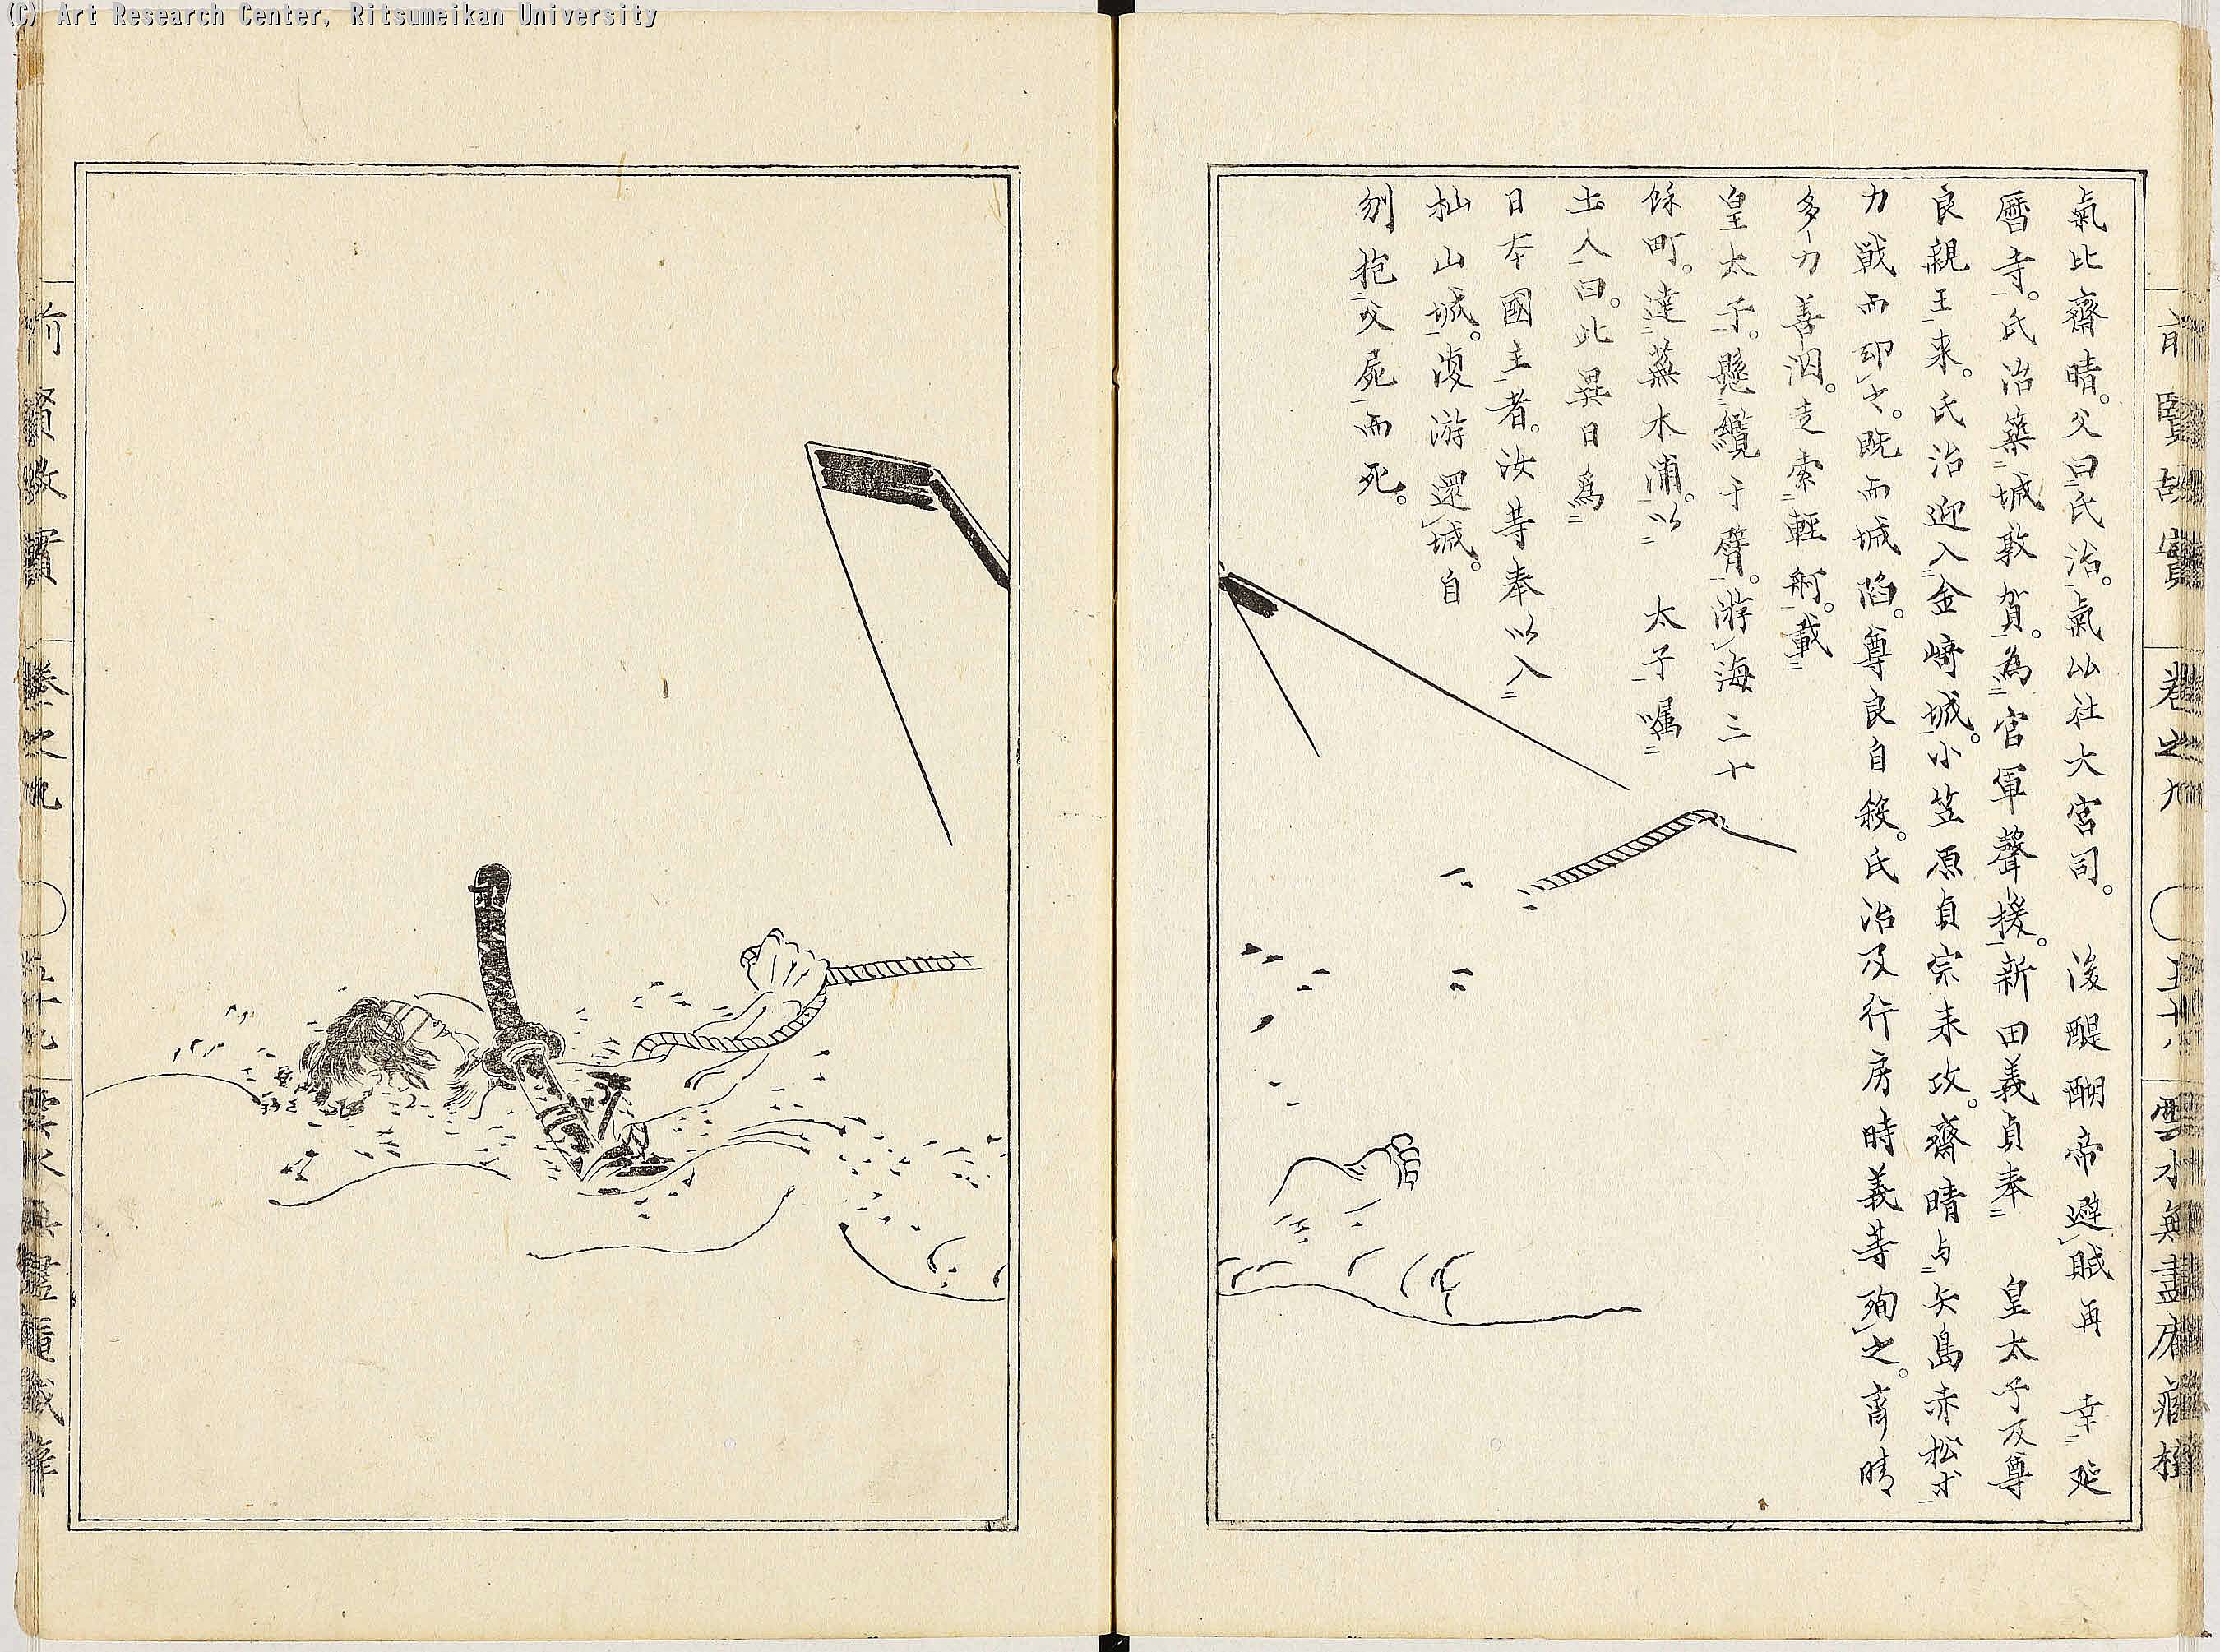 (C) Art Research Center, Ritsumeikan University
前賢故實 卷之九 五十八 雲水無盡庵藏梓
氣比齋晴。父曰氏治。氣比社大宮司。 後醍醐帝避賊再 幸延
曆寺。氏治築城敦賀。為官軍聲援。新田義貞奉 皇太子及尊
良親王來。氏治迎入金﨑城。小笠原貞宗来攻。齋晴与矢島赤松等
力戰而却之。既而城陷。尊良自殺。氏治及行房時義等殉之。齋晴
多力善泅。走索輕舸。載
皇太子。懸纜于臂。游海三十
餘町。達蕪木浦。以 太子嘱
土人曰。此異日為
日本國主者。汝等奉以入
杣山城。復游還城。自
刎抱父屍而死。
前賢故實 卷之九 五十九